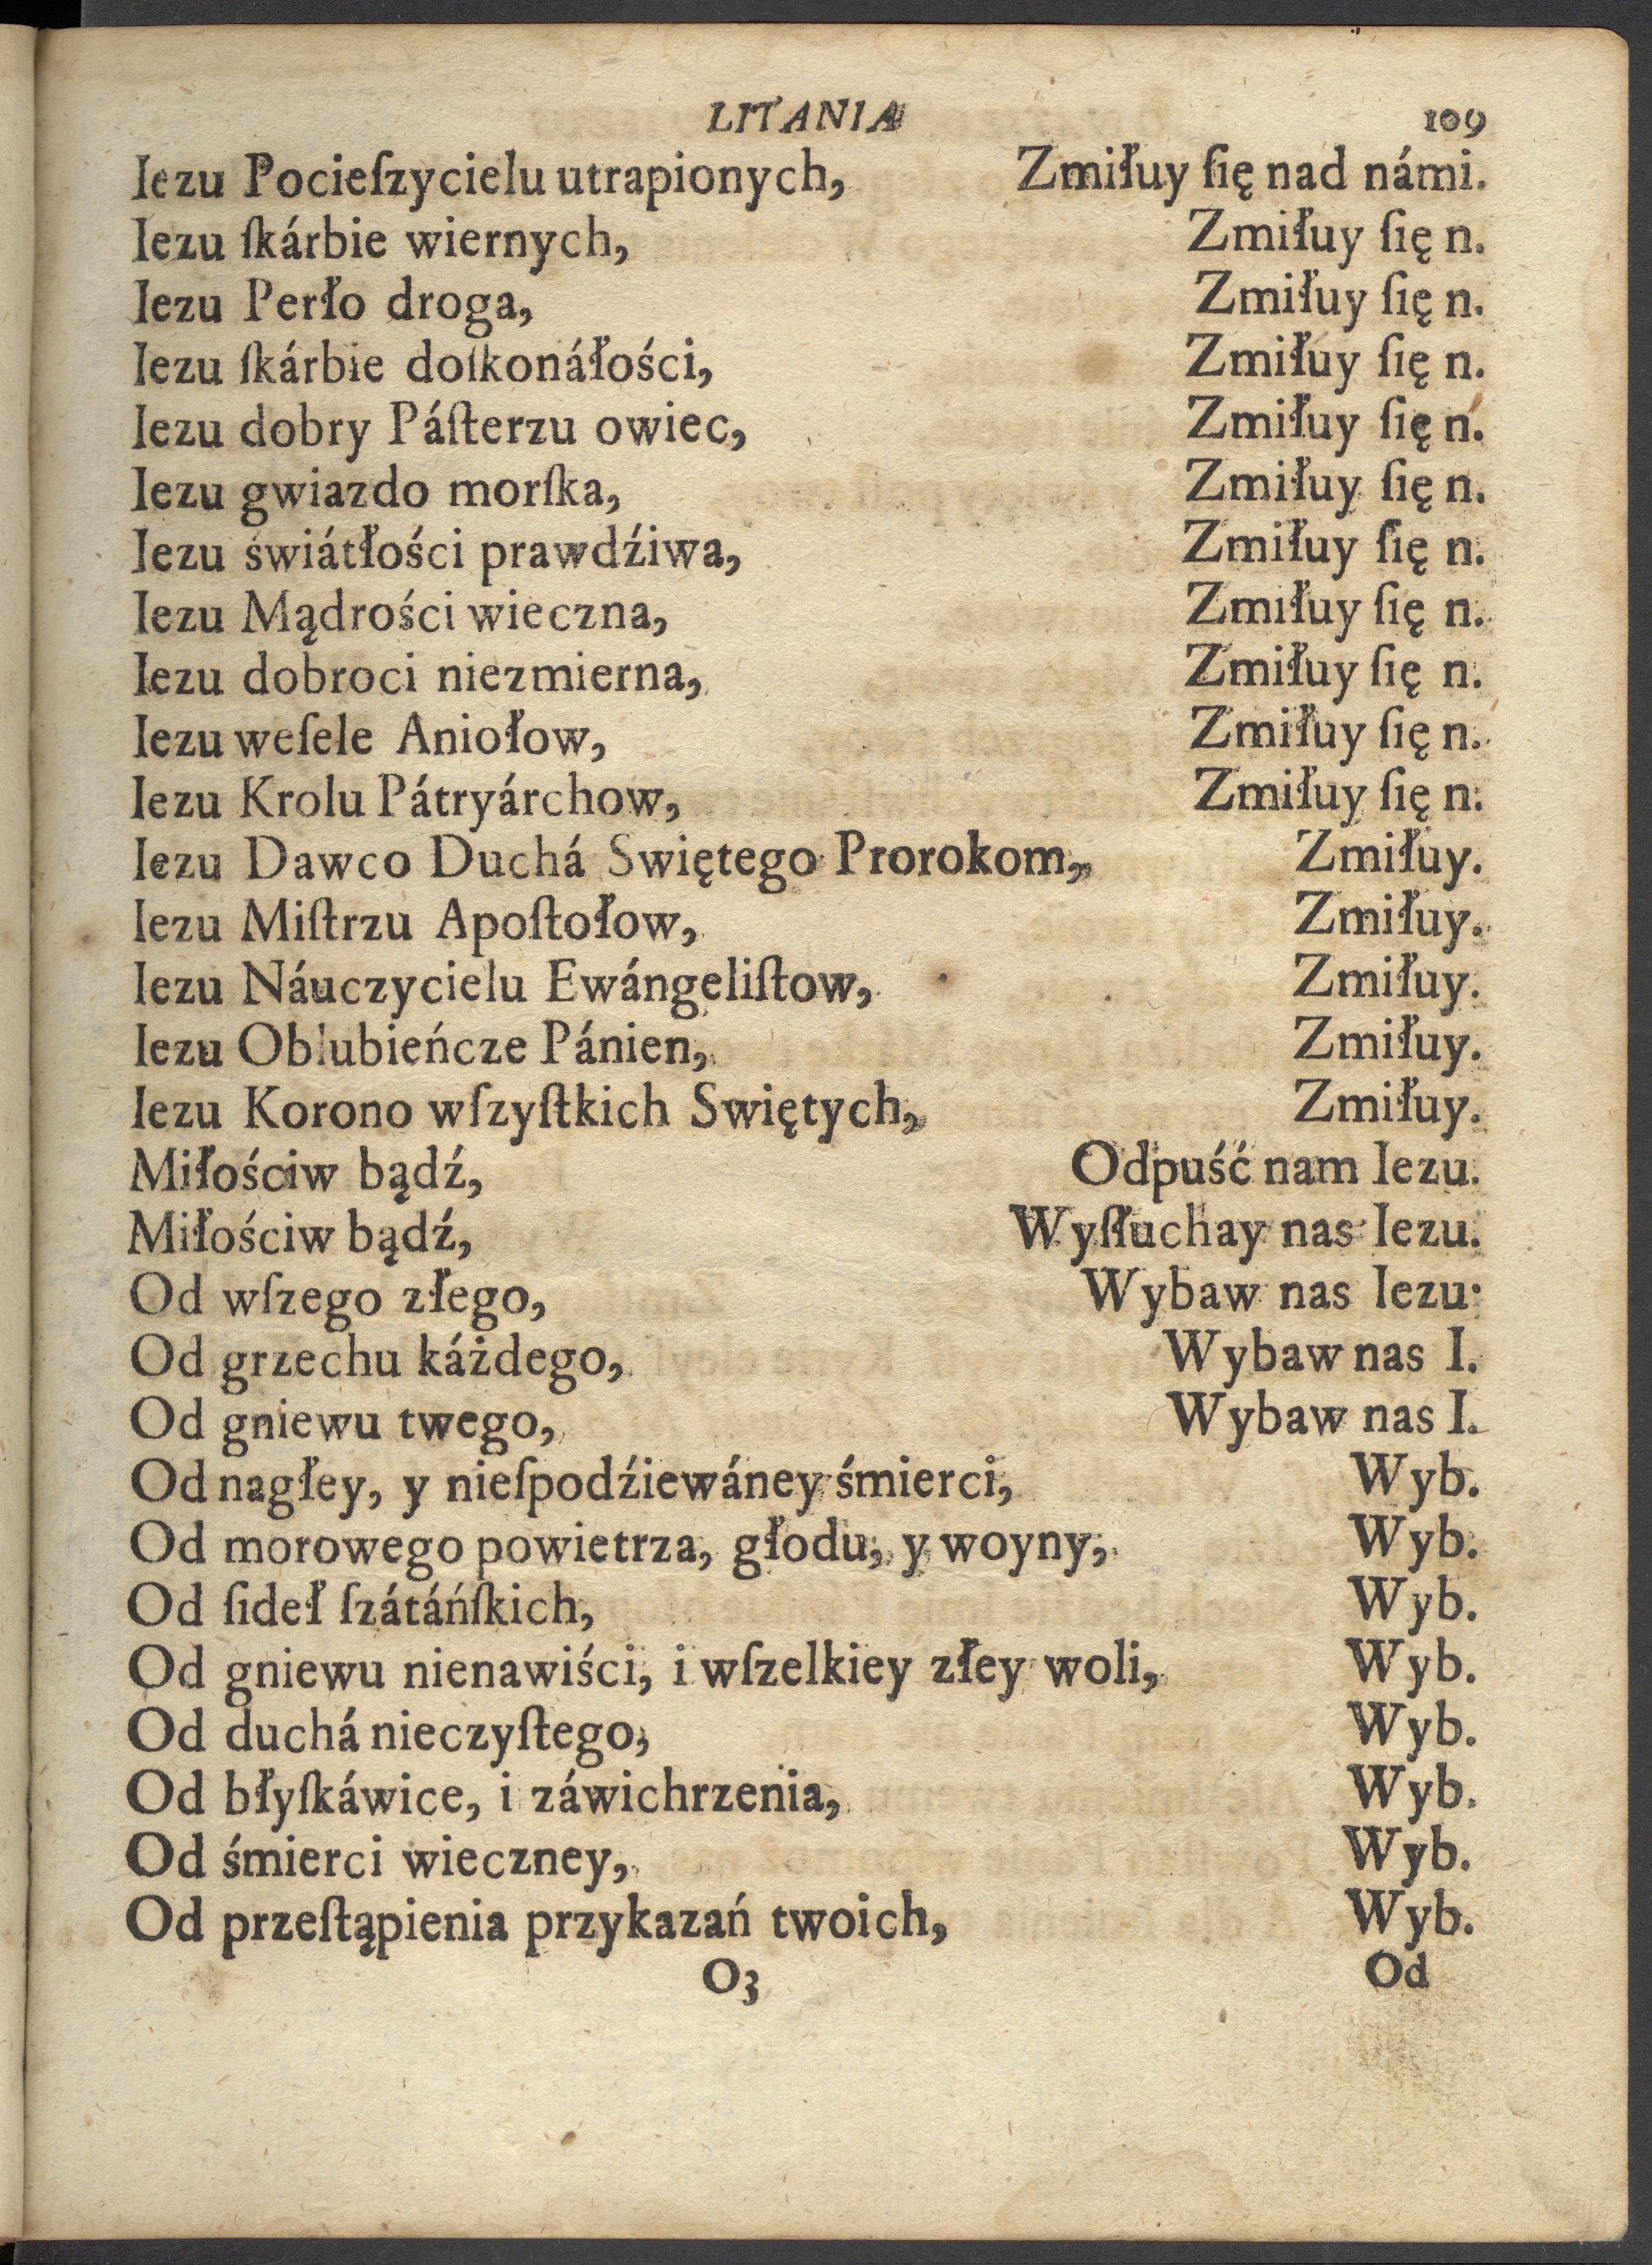 LITANIA 109
Iezu Pocieſzycielu utrapionych, Zmiłuy ſię nad námi.
Iezu ſkárbie wiernych, Zmiłuy ſię n.
Iezu Perło droga, Zmiłuy ſię n.
Iezu ſkárbie doſkonáłości, Zmiłuy ſię n.
Iezu dobry Páſterzu owiec, Zmiłuy ſię n.
Iezu gwiazdo morſka, Zmiłuy ſię n.
Iezu świátłości prawdźiwa, Zmiłuy ſię n.
Iezu Mądrości wieczna, Zmiłuy ſię n.
Iezu dobroci niezmierna, Zmiłuy ſię n.
Iezu weſele Aniołow, Zmiłuy ſię n.
Iezu Krolu Pátryárchow, Zmiłuy ſię n.
Iezu Dawco Duchá Swiętego Prorokom, Zmiłuy.
Iezu Miſtrzu Apoſtołow, Zmiłuy.
Iezu Náuczycielu Ewángeliſtow, Zmiłuy.
Iezu Oblubieńcze Pánien, Zmiłuy.
Iezu Korono wſzyſtkich Swiętych, Zmiłuy.
Miłościw bądź, Odpuść nam Iezu.
Miłościw bądź, Wyſłuchay nas Iezu.
Od wſzego złego, Wybaw nas Iezu.
Od grzechu káżdego, Wybaw nas I.
Od gniewu twego, Wybaw nas I.
Od nagłey, y nieſpodźiewáney śmierci, Wyb.
Od morowego powietrza, głodu, y woyny, Wyb.
Od ſideł ſzátáńſkich, Wyb.
Od gniewu nienawiści, i wſzelkiey złey woli, Wyb.
Od duchá nieczyſtego, Wyb.
Od błyſkáwice, i záwichrzenia, Wyb.
Od śmierci wieczney, Wyb.
Od przeſtąpienia przykazań twoich, Wyb.
O3 Od